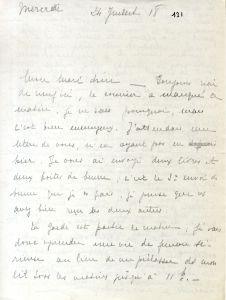 Mercredi 24 Juillet 18 121
Mon Marc chéri Toujours rien
de neuf ici, le courrier a manqué ce
matin, je ne sais pourquoi, mais
c'est bien ennuyeux. J'attendais une
lettre de vous, n'en ayant pas eu
hier. Je vous ai envoyé deux livres et
deux boîtes de beurre; c'est le 3e envoi de
beurre que je fais, je pense que vous
avez bien reçu les deux autres.
est partie ce matin, je vais
donc reprendre une vie de femme sé-
rieuse au lieu de
lit tous les matins jusqu'à 11 h.